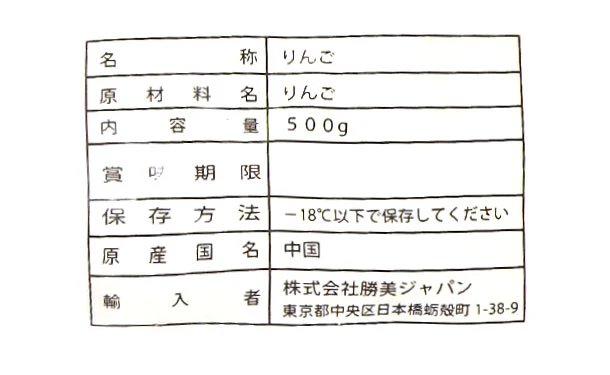 名称 りんご
原材料名 りんご
内容量 500g
賞味期限
保存方法 -18℃以下で保存してください
原産国名 中国
輸入者 株式会社勝美ジャパン
東京都中央区日本橋蛎殻町 1-38-9